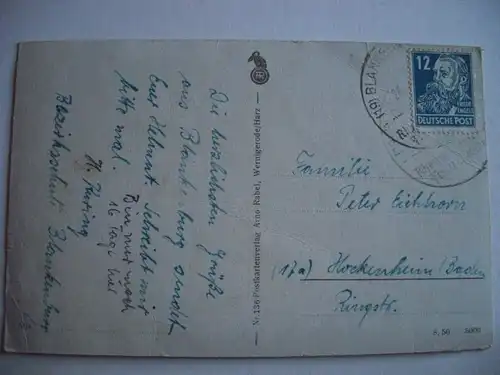 Die herzlichsten Grüße
aus Blankenburg sendet
Euer Helmut. Schreibt mir
bitte mal. Bin nur noch
16 Tage hier
H. Hering
Bezirksschule Blankenburg
No. 136 Postkartenverlag Arno Rahel, Wernigerode/Harz
12
DEUTSCHE POST
(19) BLANKE
Familie
Peter Eichhorn
(17a) Hockenheim/Baden
Ringstr.